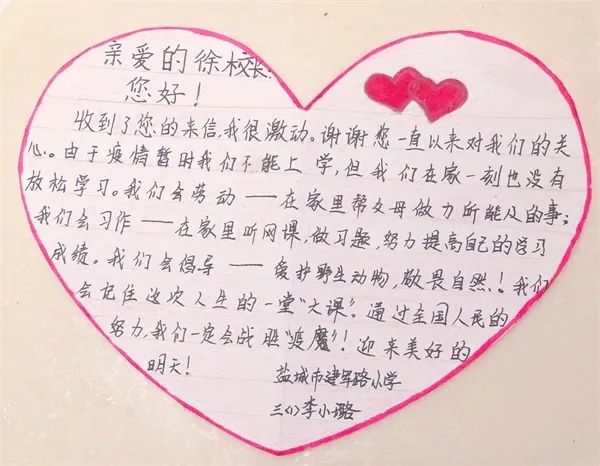 亲爱的徐校长:
您好!
收到了您的来信,我很激动。谢谢您一直以来对我们的关
心。由于疫情暂时我们不能上学,但我们在家一刻也没有
放松学习。我们会劳动——在家里帮父母做力所能及的事;
我们会习作——在家里听网课,做习题,努力提高自己的学习
成绩。我们会倡导——爱护野生动物,敬畏自然!我们
会记住这次人生的一堂“大课”。通过全国人民的
努力,我们一定会战胜“疫魔”!迎来美好的
明天!
盐城市建军路小学
三(1)李小璐